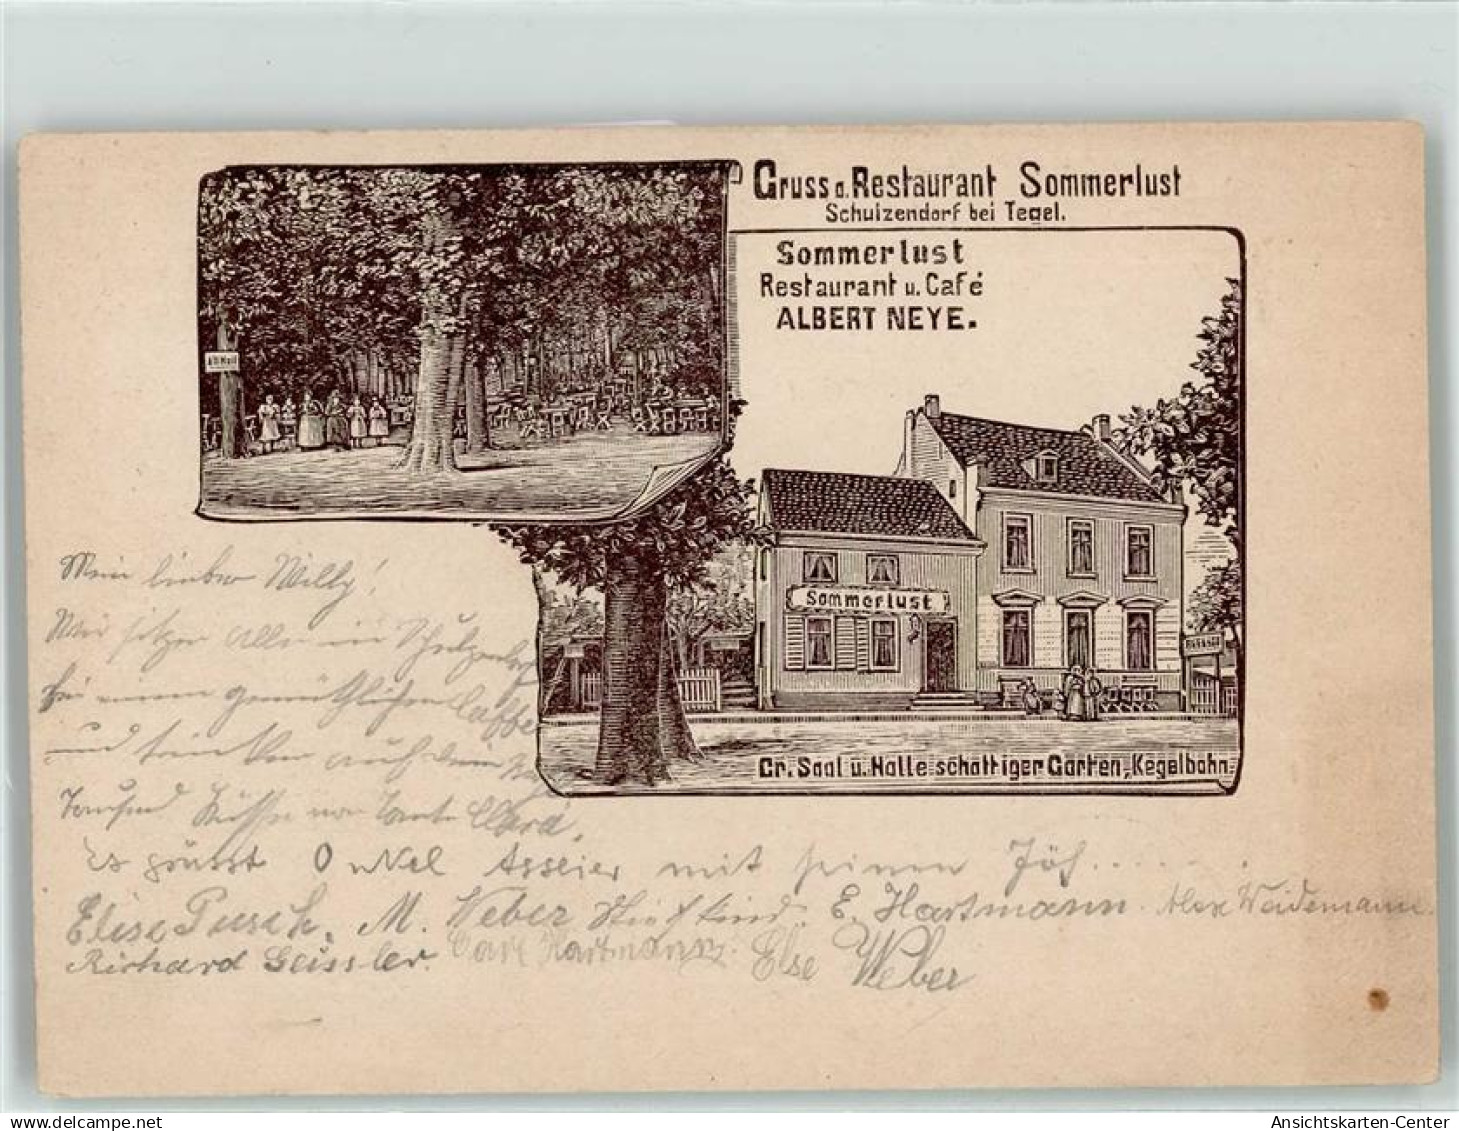 Gruss a. Restaurant Sommerlust
Schulzendorf bei Tegel.
Sommerlust
Restaurant u. Café
ALBERT NEYE.
Sommerlust
Gr. Saal u. Halle schattiger Garten, Kegelbahn
Mein lieber Willy!
Wir sitzen alle in Schulzendorf
bei einem gemütlichen Caffee
und trinken auch dein
Tausend Küsse von Tante Clara.
Es grüsst Onkel Asseier mit seinen Jöh.....
Elise Pusch, M. Weber Stiefkind. E. Hartmann. Alex Weidemann.
Richard Geissler. Carl Hartmann. Else Weber
Ansichtskarten-Center